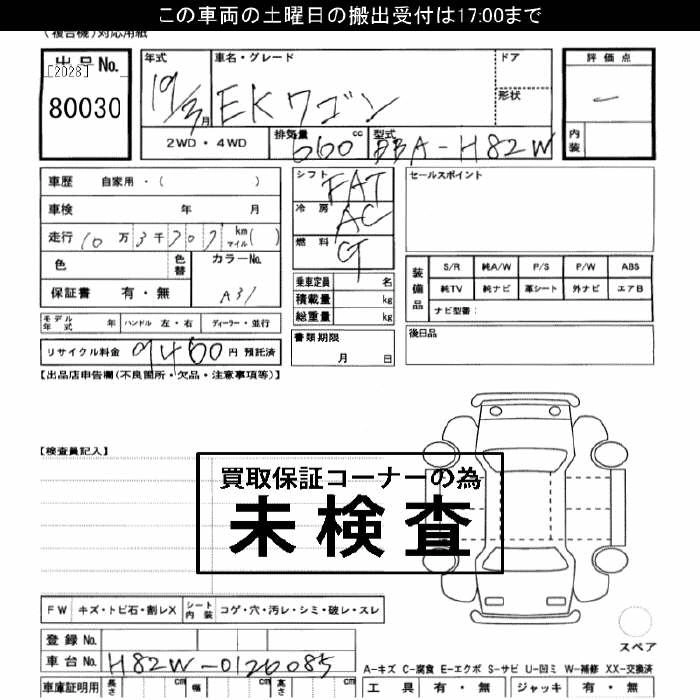 この車両の土曜日の搬出受付は17:00まで
(複合機)対応用紙
出品No. [2028] 80030
年式 19/3月 車名・グレード EKワゴン ドア 形状
評価点 ー 内装
2WD・4WD 排気量 660 cc 型式 BBA-H82W
車歴 自家用・( )
車検 年 月
走行 10万3千707 km マイル( )
色 色替 カラーNo. A31
保証書 有・無
シフト FAT
冷房 AC
燃料 G
乗車定員 名
積載量 kg
総重量 kg
書類期限 月 日
セールスポイント
装備品 S/R 純A/W P/S P/W ABS
純TV 純ナビ 革シート 外ナビ エアB
ナビ型番:
後日品
モデル年式 年 ハンドル 左・右 ディーラー・並行
リサイクル料金 9460 円 預託済
【出品店申告欄(不良箇所・欠品・注意事項等)】
【検査員記入】
買取保証コーナーの為
未検査
FW キズ・トビ石・割レX シート内装 コゲ・穴・汚レ・シミ・破レ・スレ
登録No.
車台No. H82W-0126085
スペア
A-キズ C-腐食 E-エクボ S-サビ U-凹ミ W-補修 XX-交換済
車庫証明用 長さ cm 幅 cm 高さ cm
工具 有・無 ジャッキ 有・無